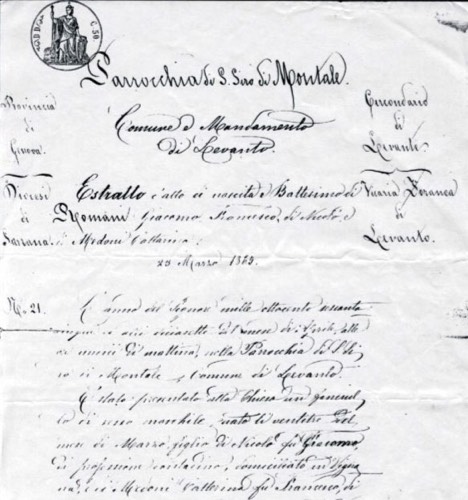 C. 50
Parrocchia di S. Siro di Montale.
Provincia
di
Genova.
Comune e Mandamento
di Levanto.
Circondario
di
Levante
Diocesi
di
Sarzana.
Estratto d'atto di nascita e Battesimo di
Romani Giacomo Francesco, di Nicolò e
di Medoni Catterina.
23 Marzo 1865.
Vicaria Foranea
di
Levanto.
No. 21.
L'anno del Signore mille ottocento sessanta
cinque ed alli diciasette del mese di Aprile, alle
di mattina, nella Parrocchia di S. Si
ro di Montale, Comune di Levanto.
È stato presentato alla Chiesa un fanciul
lo di sesso maschile, nato li ventitre del
mese di Marzo, figlio di Nicolò fu Giacomo,
di professione contadino, domiciliato in
e di Medoni Catterina fu Francesco, di